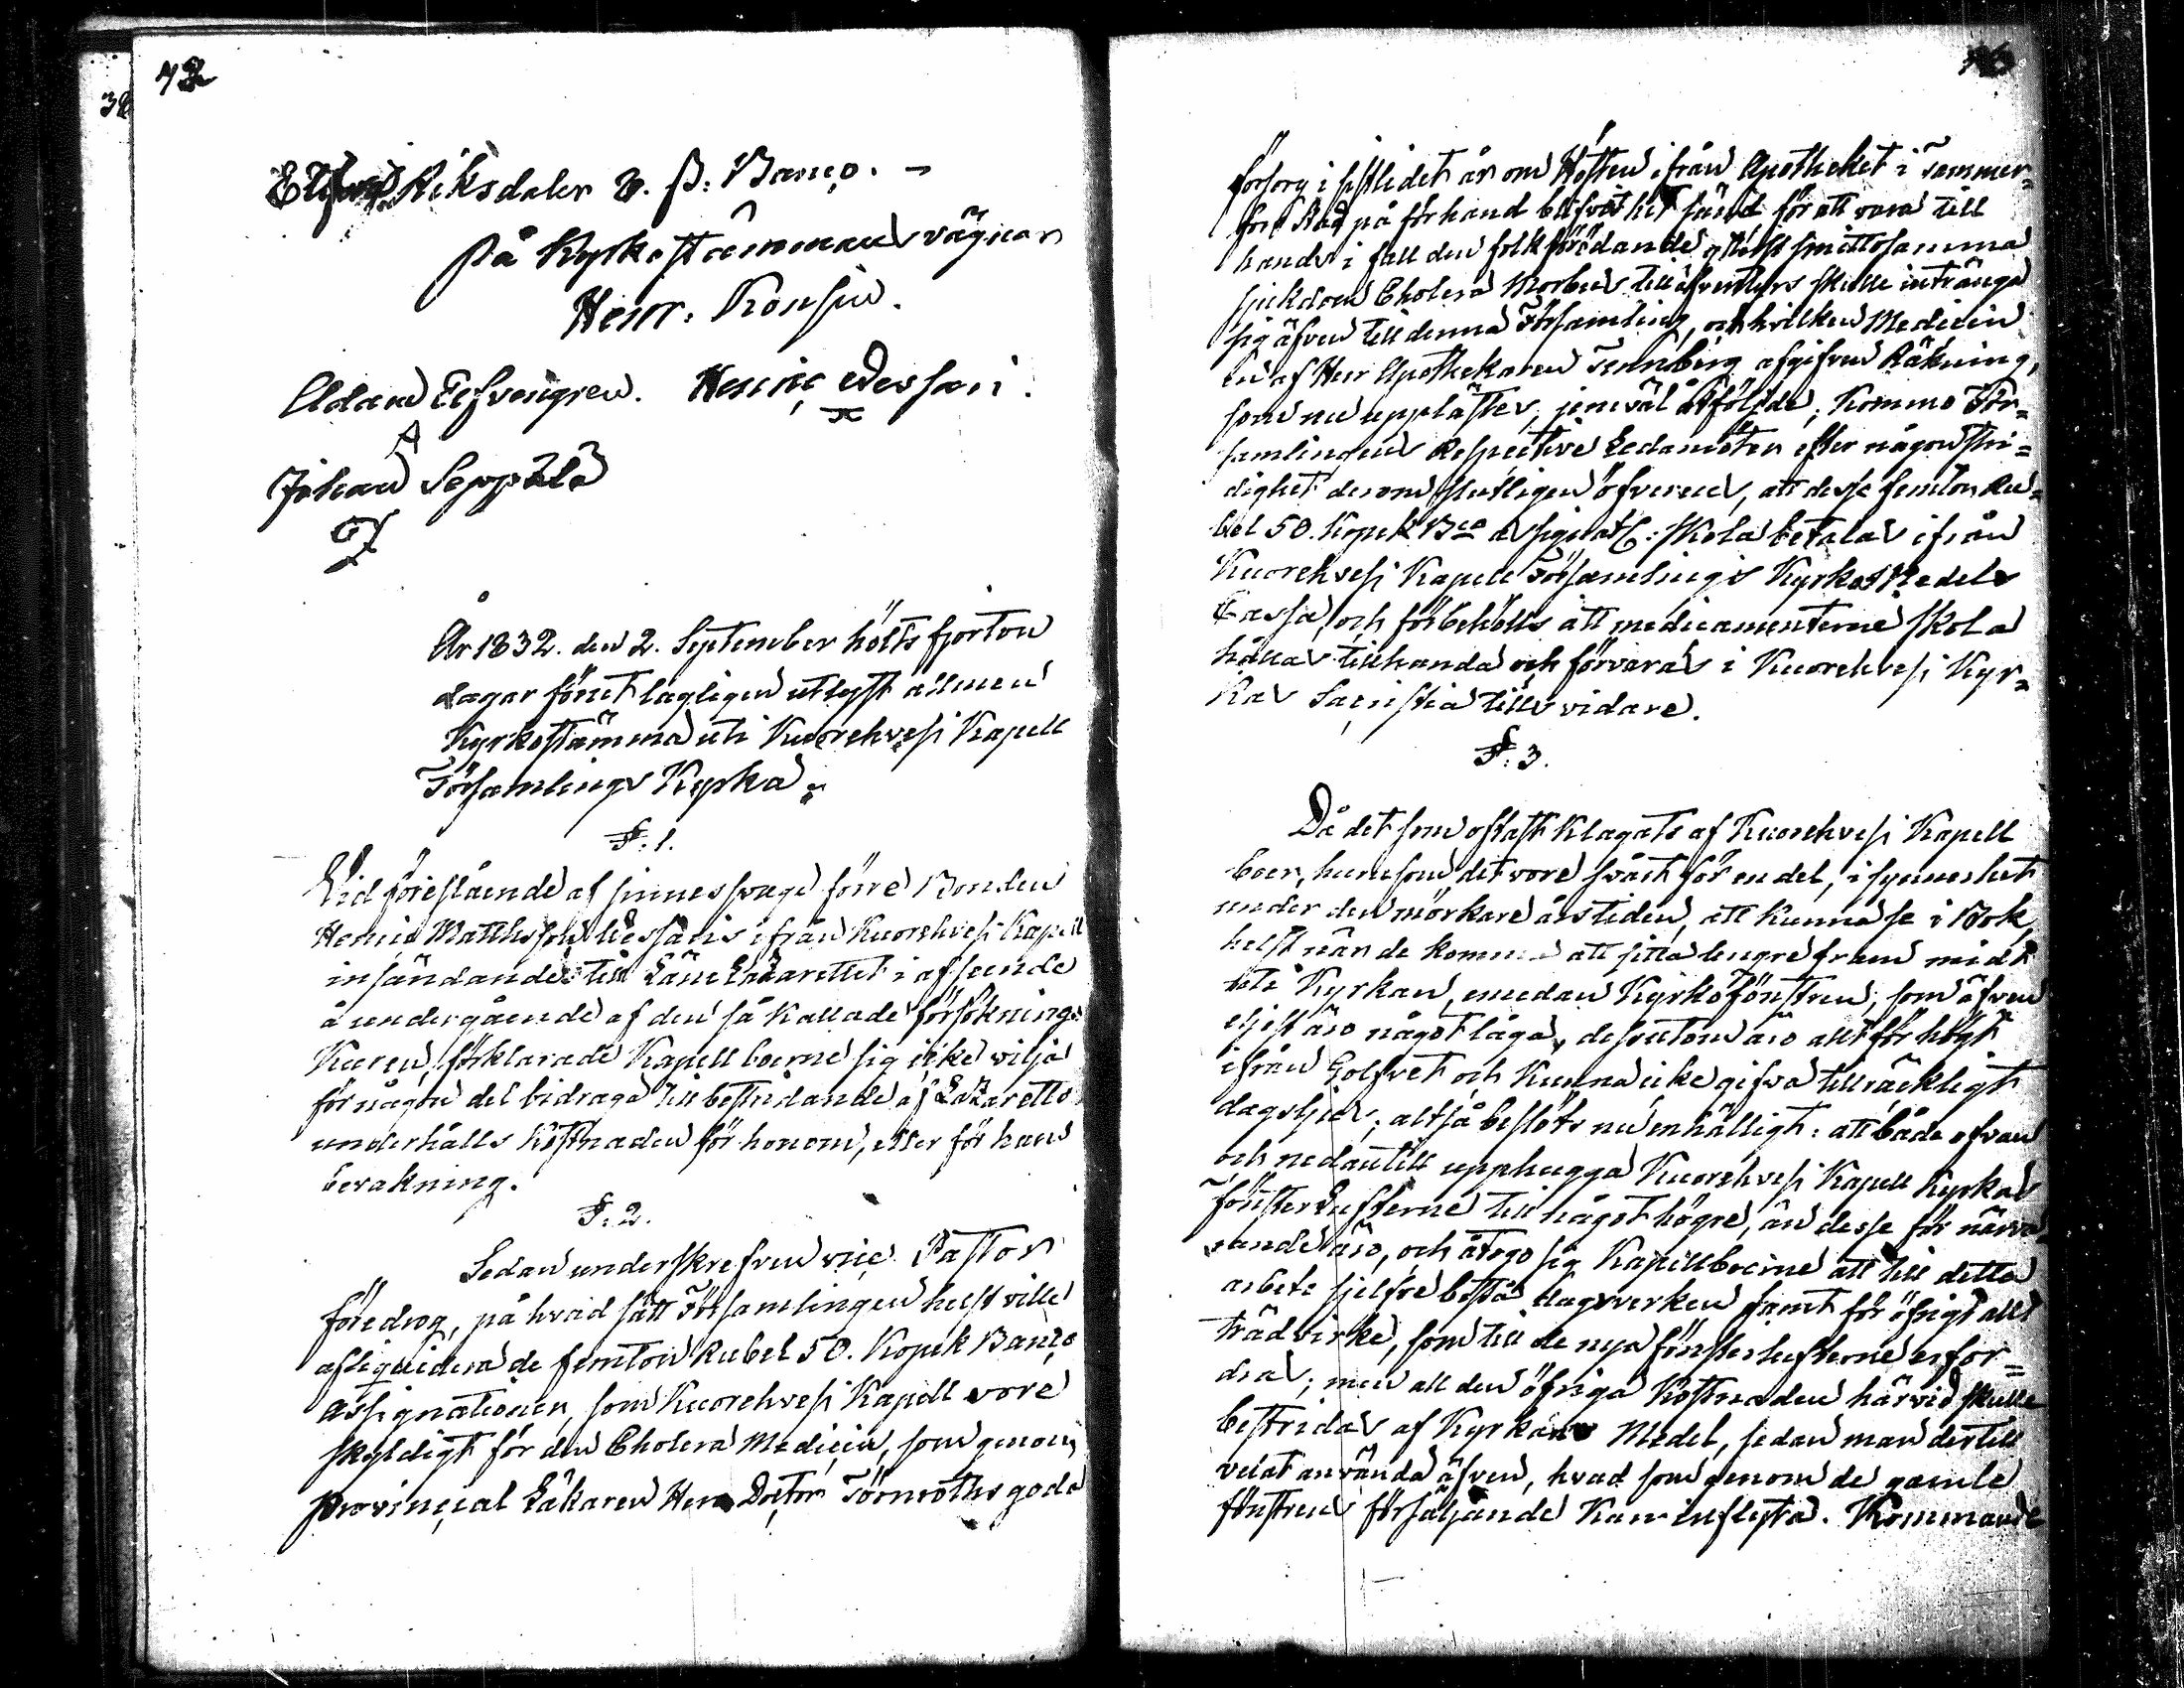 72
38
Elfva Riksdaler S. B: Banco. –
På Kyrkostämmans vägnar
Henr: Konsin.
Adam Elfvengren. Henric Wessari.
Johan Seppälä
År 1832. den 2. September hölts fjorton
dagar förut lagligen utlyst allmen
Kyrkostämma uti Kuorehvesi Kapell
Församlings Kyrka;
§. 1.
Vid föreslående af sinnessvage förre Bonden
Henric Matthsson Wessaris ifrån Kuorehvesi Kapell
insändande till Läne Lazarettet i afseende
å undergående af den så kallade försöknings
Kuren, förklarade Kapellboerne sig icke vilja
för någon del bidraga till bestridande af Lazaretts
underhålls kostnaden för honom, eller för hans
bevakning.
§. 2.
Sedan underskrefven vice Pastor
föredrog, på hvad sätt Församlingen helst ville
afliquidera de femton Rubel 50. Kopek Banco
Assignationer, som Kuorehvesi Kapell vore
skyldigt för den Cholera Medicin, som genom
provincial Läkaren Herr Doctor Törnroths goda
försorg i sistledet år om Hösten ifrån Apotheket i Tammer=
fors Stad på förhand blifvit hit sänd för att vara till
hands i fall den folkförödande ytterst smittosamma
sjukdom Cholera Morbus till äfventyrs skulle intränga
sig äfven till denna Församling, och hvilken Medicin
en af Herr Apothekaren Tennberg afgifven Räkning,
som nu upplästes, jemväl åtföljde; Kommo För=
samlingens Respective Ledamöter efter någon stri=
dighet derom slutligen öfverens, att desse femton Ru=
bel 50. Kopek Bco Assignat: skola betalas ifrån
Kuorehvesi Kapell Församlings Kyrkos Medels
Cassa, och förbehölls att medicamenterne skola
hållas tillhanda och förvaras i Kuorehvesi Kyr=
kas Sacristia tills vidare.
§. 3.
Då det som oftast klagats af Kuorehvesi Kapell
boer, hurusom det vore svårt för en del, i synnerhet
under den mörkare årstiden, att kunna se i Bok,
helst när de komma att sitta lengre fram midt
uti Kyrkan, emedan Kyrkofönstren, som äfven
eljest äro något låga, dessutom äro allt för högt
ifrån Golfvet och kunna icke gifva tillräckligt
dagsljus; altså beslöts nu enhälligt: att både ofvan
och nedantill upphugga Kuorehvesi Kapell Kyrkas
Fönster Lufterne till något högre, än desse för närva=
rande äro, och åtogo sig Kapellboerne att till detta
arbete sjelfve bestå dagsverken samt för öfrigt allt
trädvirke, som till de nya fönsterlufterne erfor=
dras; men all den öfriga kostnaden härvid skulle
bestridas af Kyrkans Medel, sedan man dertill
velat använda äfven, hvad som genom de gamle
fönstrens försäljande kan inflyta. Kommande